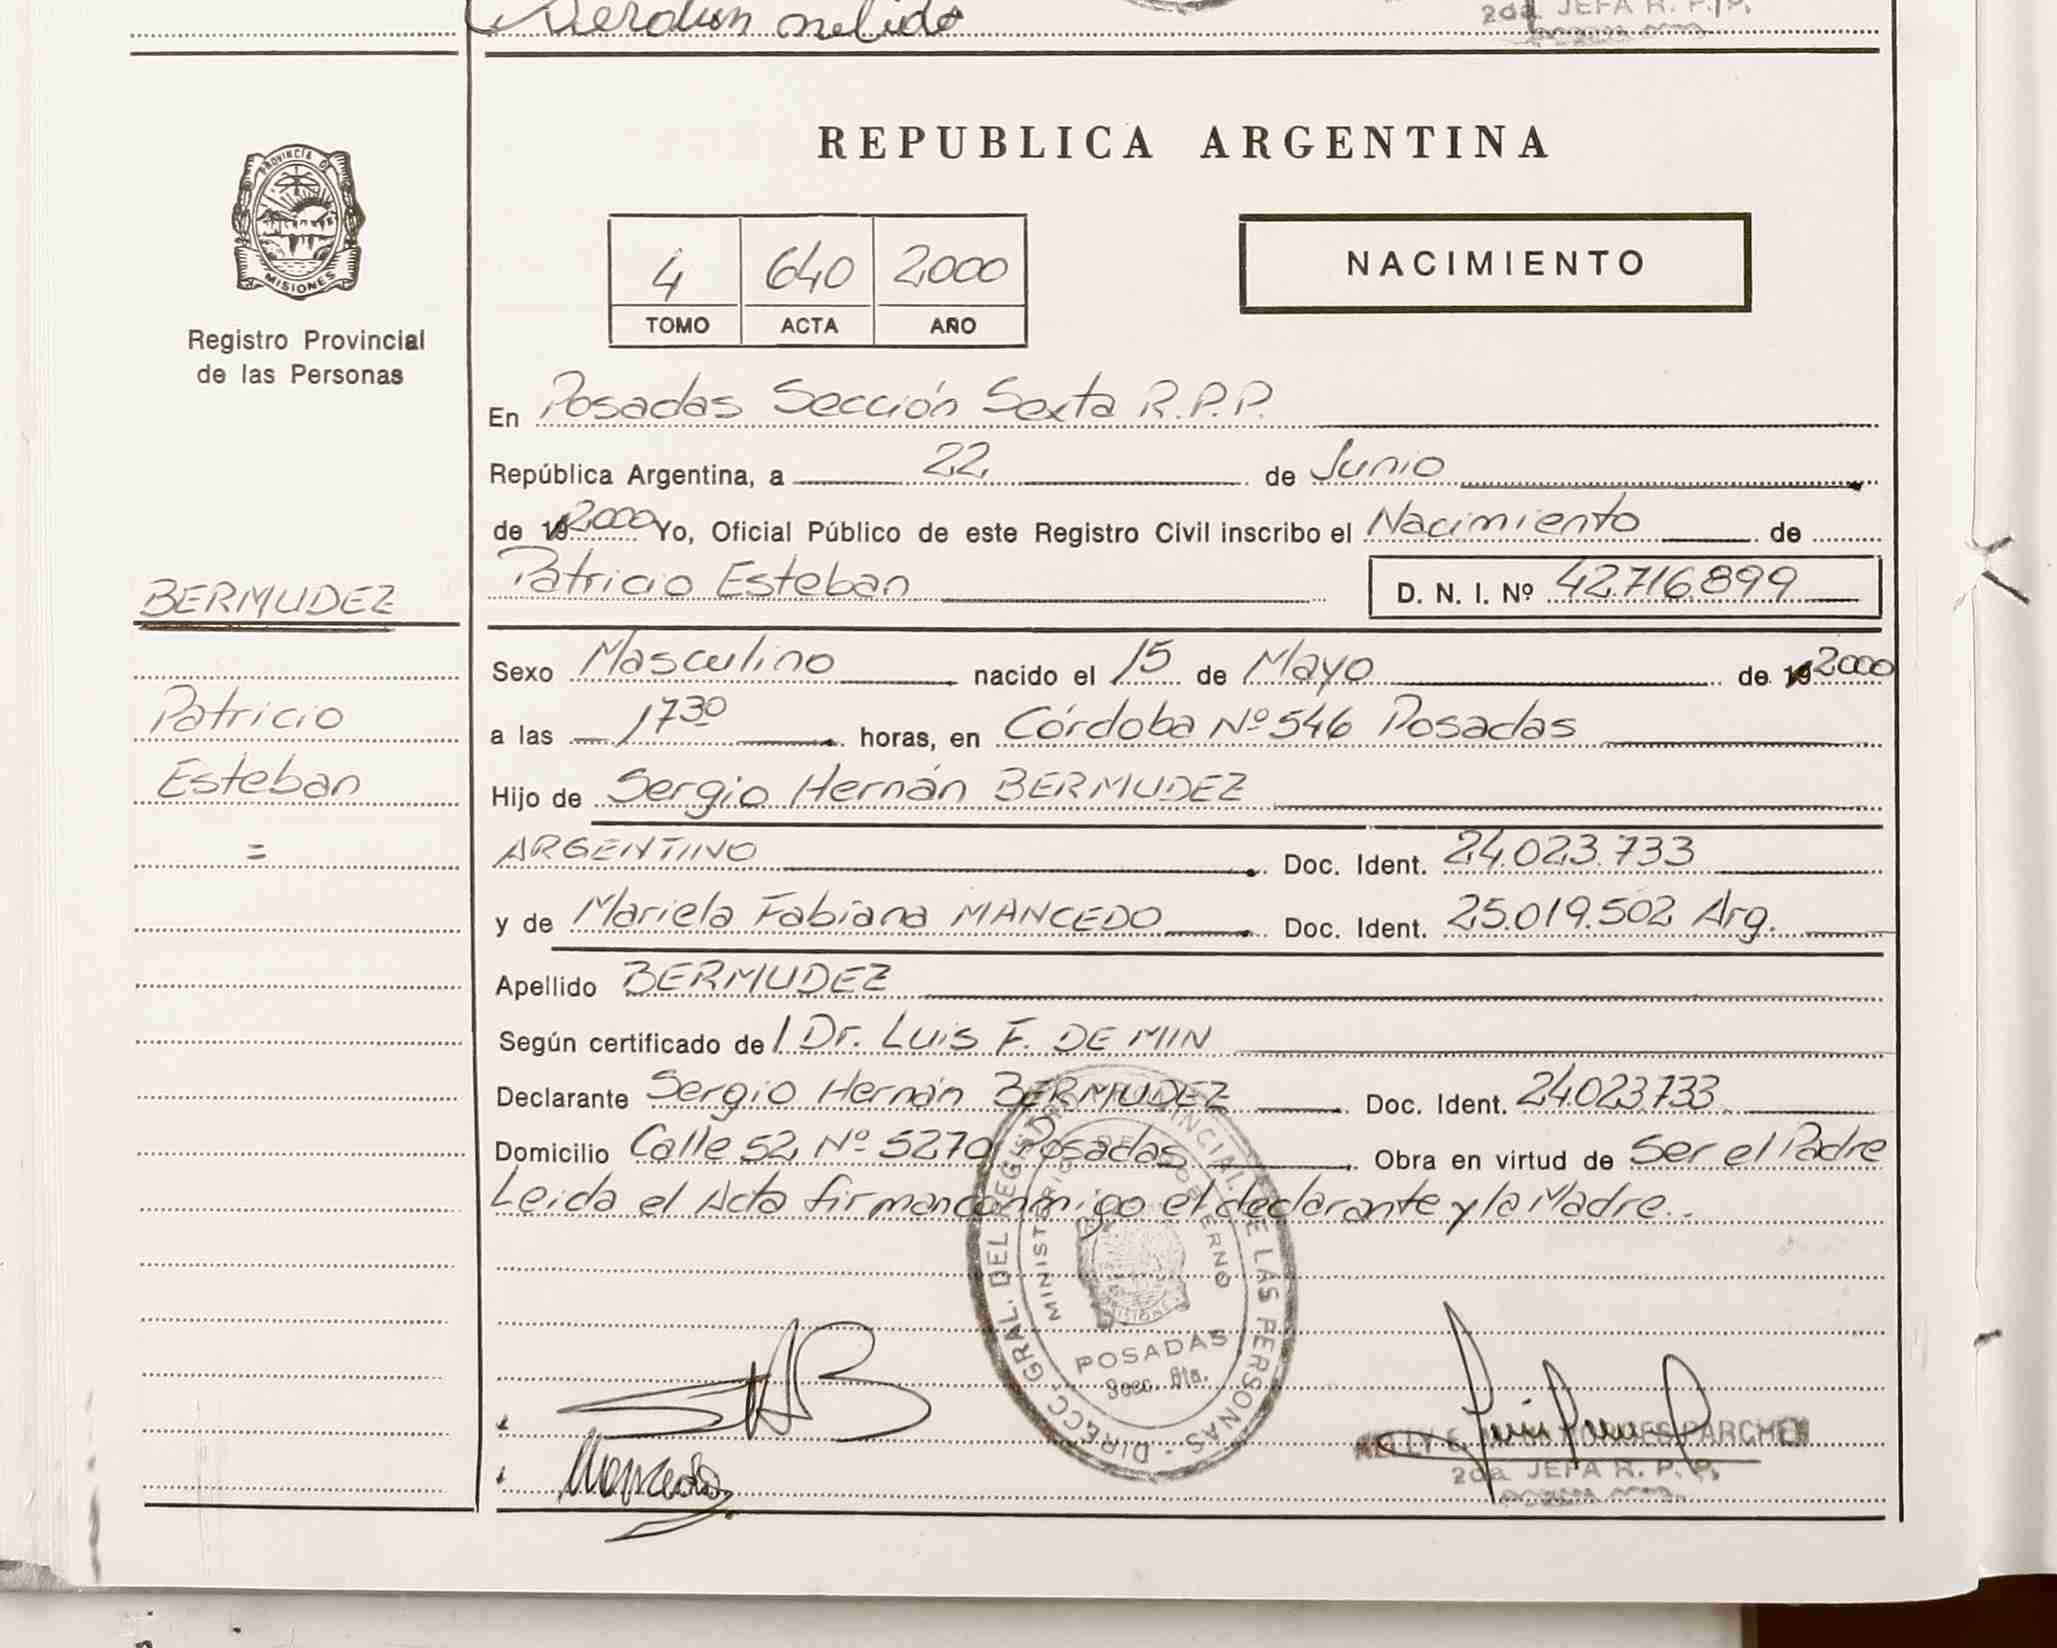 2da JEFA R. P. P.
REPUBLICA ARGENTINA
PROVINCIA DE
MISIONES
Registro Provincial
de las Personas
4 640 2000
TOMO ACTA AÑO
NACIMIENTO
En Posadas Sección Sexta R.P.P.
República Argentina, a 22 de Junio
de 19 2000 Yo, Oficial Público de este Registro Civil inscribo el Nacimiento de
Patricio Esteban D. N. I. Nº 42.716.899
BERMUDEZ
Patricio
Esteban
=
Sexo Masculino nacido el 15 de Mayo de 19 2000
a las 17 30 horas, en Córdoba Nº 546 Posadas
Hijo de Sergio Hernán BERMUDEZ
ARGENTINO Doc. Ident. 24.023.733
y de Mariela Fabiana MANCEDO Doc. Ident. 25.019.502 Arg.
Apellido BERMUDEZ
Según certificado de l Dr. Luis F. DE MIN
Declarante Sergio Hernán BERMUDEZ Doc. Ident. 24.023.733
Domicilio Calle 52 Nº 5270 Posadas Obra en virtud de Ser el Padre
Leida el Acta firman conmigo el declarante y la Madre.
DIRECC. GRAL. DEL REGISTRO PROVINCIAL DE LAS PERSONAS
MINISTERIO DE GOBIERNO
MISIONES
POSADAS
Secc. 6ta.
Mancedo
2da JEFA R. P. P.